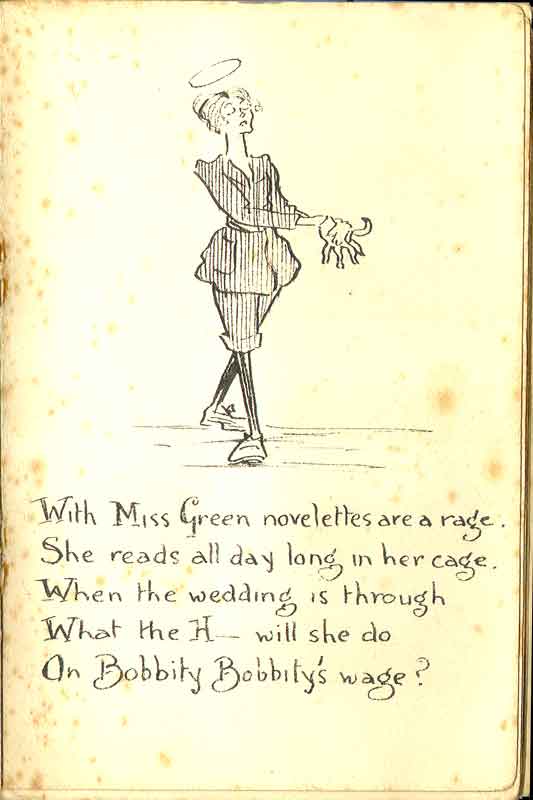 With Miss Green novelettes are a rage.
She reads all day long in her cage.
When the wedding is through
What the H— will she do
On Bobbity Bobbity's wage?